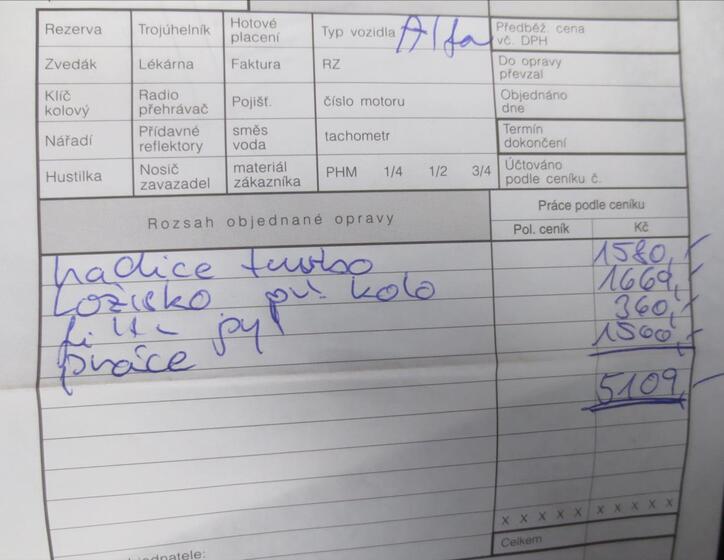 Rezerva Trojúhelník Hotové placení Typ vozidla Alfa Předběž. cena vč. DPH
Zvedák Lékárna Faktura RZ Do opravy převzal
Klíč kolový Radio přehrávač Pojišť. číslo motoru Objednáno dne
Nářadí Přídavné reflektory směs voda tachometr Termín dokončení
Hustilka Nosič zavazadel materiál zákazníka PHM 1/4 1/2 3/4 Účtováno podle ceníku č.
Rozsah objednané opravy Práce podle ceníku
Pol. ceník Kč
hadice turbo 1580,-
Ložisko př. kolo 1669,-
filtr pyl 360,-
práce 1500,-
5109,-
x x x x x x x x x
Celkem
jednatele: